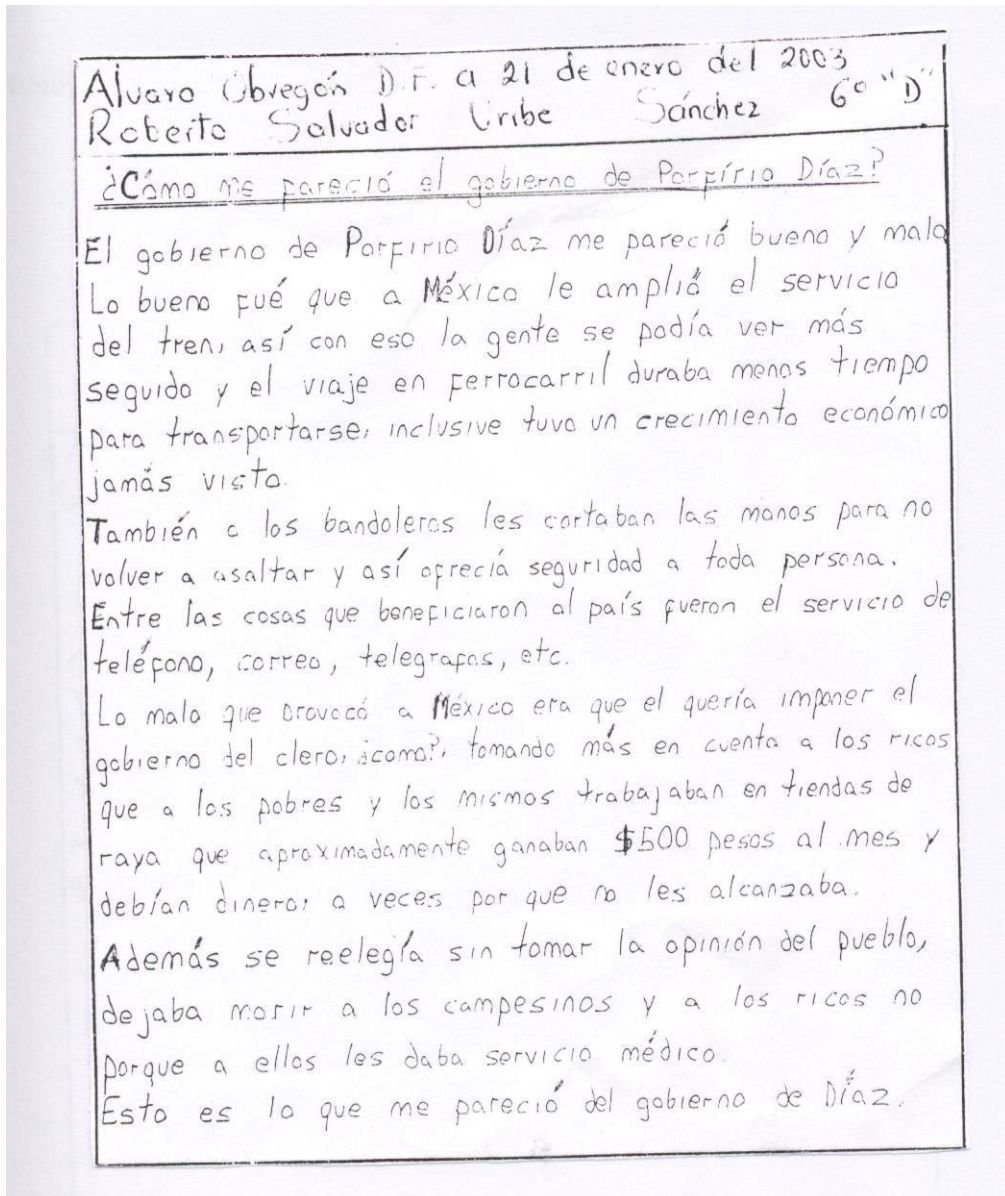 Alvaro Obregón D.F. a 21 de enero del 2003
Roberto Salvador Uribe Sánchez 6° "D"
¿Cómo me pareció el gobierno de Porfirio Díaz?
El gobierno de Porfirio Díaz me pareció bueno y malo
Lo bueno fué que a México le amplió el servicio
del tren, así con eso la gente se podía ver más
seguido y el viaje en ferrocarril duraba menos tiempo
para transportarse, inclusive tuvo un crecimiento económico
jamás visto.
También a los bandoleros les cortaban las manos para no
volver a asaltar y así ofrecía seguridad a toda persona.
Entre las cosas que beneficiaron al país fueron el servicio de
teléfono, correo, telegrafos, etc.
Lo malo que provocó a México era que el quería imponer el
gobierno del clero, ¿como?, tomando más en cuenta a los ricos
que a los pobres y los mismos trabajaban en tiendas de
raya que aproximadamente ganaban $500 pesos al mes y
debían dinero, a veces por que no les alcanzaba.
Además se reelegía sin tomar la opinión del pueblo,
dejaba morir a los campesinos y a los ricos no
porque a ellos les daba servicio médico.
Esto es lo que me pareció del gobierno de Díaz.